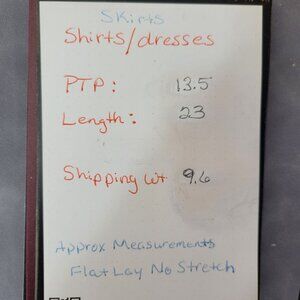 SKirts
Shirts/dresses
PTP: 13.5
Length: 23
Shipping wt 9.6
Approx Measurements
Flat Lay No Stretch